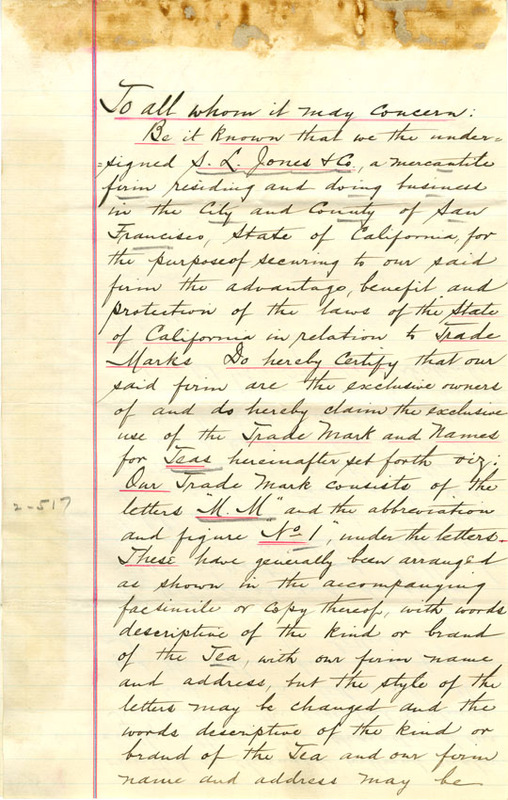 To all whom it may concern:
Be it known that we the under=
=signed S. L. Jones & Co., a mercantile
firm residing and doing business
in the City and County of San
Francisco, State of California, for
the purpose of securing to our said
firm the advantage, benefit and
protection of the laws of the State
of California in relation to Trade
Marks Do hereby Certify that our
said firm are the exclusive owners
of and do hereby claim the exclusive
use of the Trade Mark and Names
for Teas hereinafter set forth viz:
Our Trade Mark consists of the
letters "M. M" and the abbreviation
2-517
and figure "No 1", under the letters.
These have generally been arranged
as shown in the accompanging
facsimile or copy thereof, with words
descriptive of the kind or brand
of the Tea, with our firm name
and address, but the style of the
letters may be changed and the
words descriptive of the kind or
brand of the Tea and our firm
name and address may be